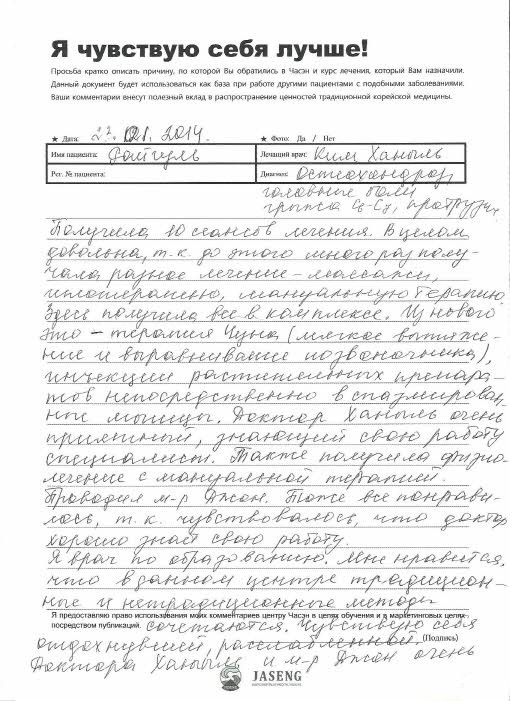 Я чувствую себя лучше!
Просьба кратко описать причину, по которой Вы обратились в Часэн и курс лечения, который Вам назначили.
Данный документ будет использоваться как база при работе другими пациентами с подобными заболеваниями.
Ваши комментарии внесут полезный вклад в распространение ценностей традиционной корейской медицины.
★ Дата: 22. 01. 2014. ★ Фото: Да / Нет
Имя пациента: Лечащий врач: Ким Ханыль
Рег. № пациента: Диагноз: Остеохандроз,
головные боли
грыжа C6-C7, протрузии
Получила 10 сеансов лечения. В целом
довольна, т.к. до этого много раз полу-
чала разное лечение – массажи,
иглотерапию, мануальную терапию.
Здесь получила все в комплексе. Из нового
это – терапия Чуна (мягкое вытяже-
ние и выравнивание позвоночника),
инъекции растительных препара-
тов непосредственно в спазмирован-
ные мышцы. Доктор Ханыль очень
приятный, знающий свою работу
специалист. Также получила физио-
лечение с мануальной терапией.
Проводил м-р Джон. Тоже все понрави-
лось, т.к. чувствовалось, что доктор
хорошо знает свою работу.
Я врач по образованию. Мне нравится,
что в данном центре традицион-
ные и нетрадиционные методы
Я предоставляю право использования моих комментариев центру Часэн в целях обучения и в маркетинговых целях
посредством публикаций. сочетаются. Чувствую себя
отдохнувшей, расслабленной. (Подпись)
Доктора Ханыль и м-р Джон очень
JASENG